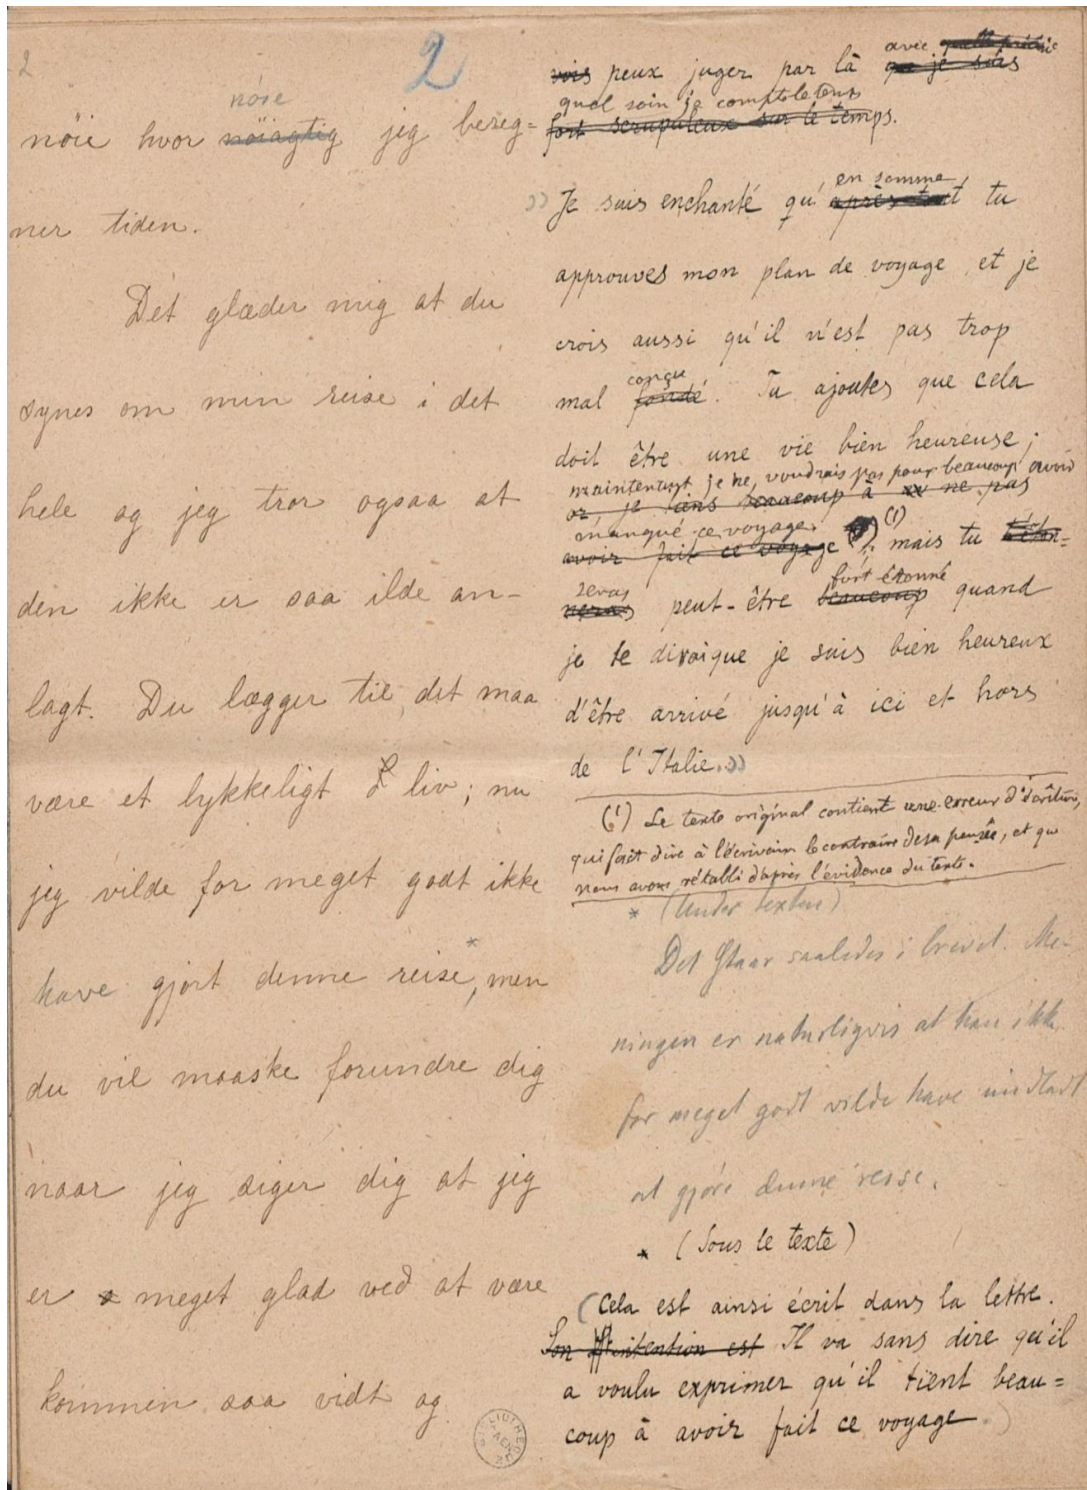 2
2
nöie
nöie hvor nöiagtig jeg bereg=
ner tiden.
Det glæder mig at du
synes om min reise i det
hele og jeg tror ogsaa at
den ikke er saa ilde an-
lagt. Du lægger til, det maa
være et lykkeligt liv; nu
jeg vilde for meget godt ikke
*
have gjort denne reise, men
du vil maaske forundre dig
naar jeg siger dig at jeg
er meget glad ved at være
kommen saa vidt og
avec
vois peux juger par là que je suis
quel soin je compte le temps
fort scrupuleux sur le temps.
en somme
» Je suis enchanté qu'après tout tu
approuves mon plan de voyage et je
crois aussi qu'il n'est pas trop
conçu
mal fondé. Tu ajoutes que cela
doit être une vie bien heureuse;
maintenant je ne voudrais pas pour beaucoup avoir
or je tiens beaucoup à ne pas
manqué ce voyage
avoir fait ce voyage (1), mais tu t'éton=
seras fort étonné
neras peut-être beaucoup quand
je te dirai que je suis bien heureux
d'être arrivé jusqu'à ici et hors
de l'Italie.»
(1) Le texte original contient une erreur d'écriture,
qui fait dire à l'écrivain le contraire de sa pensée, et que
nous avons rétabli d'après l'évidence du texte.
* (Under texten)
Det staar saaledes i brevet. Me-
ningen er naturligvis at han ikke
for meget godt vilde have undladt
at gjöre denne reise.
* (Sous le texte)
(Cela est ainsi écrit dans la lettre.
Son intention est Il va sans dire qu'il
a voulu exprimer qu'il tient beau=
coup à avoir fait ce voyage.)